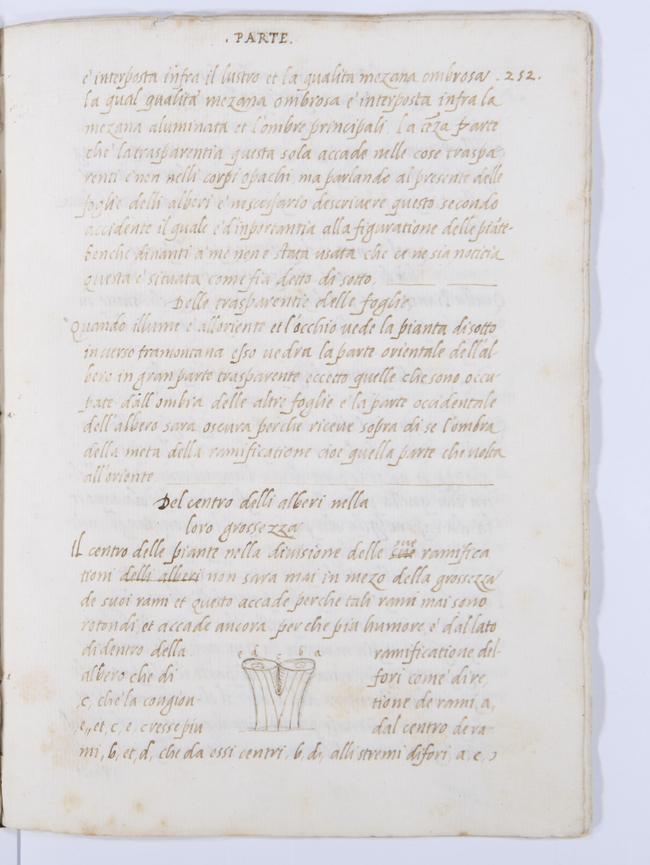 . PARTE.
. 252.
è interposta infra il lustro et la qualita mezana ombrosa
la qual qualita mezana ombrosa è interposta infra la
mezana aluminata et l'ombre principali. la tẽza parte
che la trasparentia questa sola accade nelle cose traspa
renti e non nelli corpi opachi, ma parlando al presente delle
foglie delli alberi è nescessario descrivere questo secondo
accidente il quale è d'importantia alla figuratione delle piãte
benche dinanti a me non è stata usata che ce ne sia notitia
questa è situata come fia detto di sotto,
Delle trasparentie delle foglie,
Quando il lume è all'oriente et l'occhio vede la pianta di sotto
in verso tramontana esso vedra la parte orientale dell'al-
bero in gran parte trasparente eccetto quelle che sono occu
pate dall'ombra delle altre foglie e la parte occidentale
dell'albero sara oscura perche riceve sopra di se l'ombra
della meta della ramificatione cioe quella parte che volta
all'oriente
Del centro delli alberi nella
loro grossezza
Il centro delle piante nella divisione delle sue ramifica
tioni delli alberi non sara mai in mezo della grossezza
de suoi rami et questo accade perche tali rami mai sono
rotondi, et accade ancora, perche piu humore, è dal lato
di dentro della ramificatione del-
albero che di fori come dire,
c, che la congion- tione de rami, a,
e, et, c, e cresse piu dal centro de ra-
mi, b, et, d, che da essi centri, b, d, alli stremi di fori, a, e,